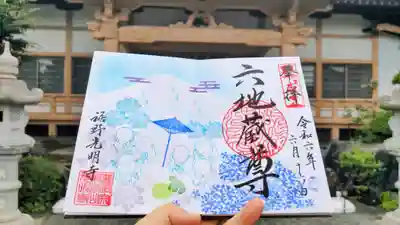 奉拝
六地蔵尊
令和六年
六月
裾野光明寺